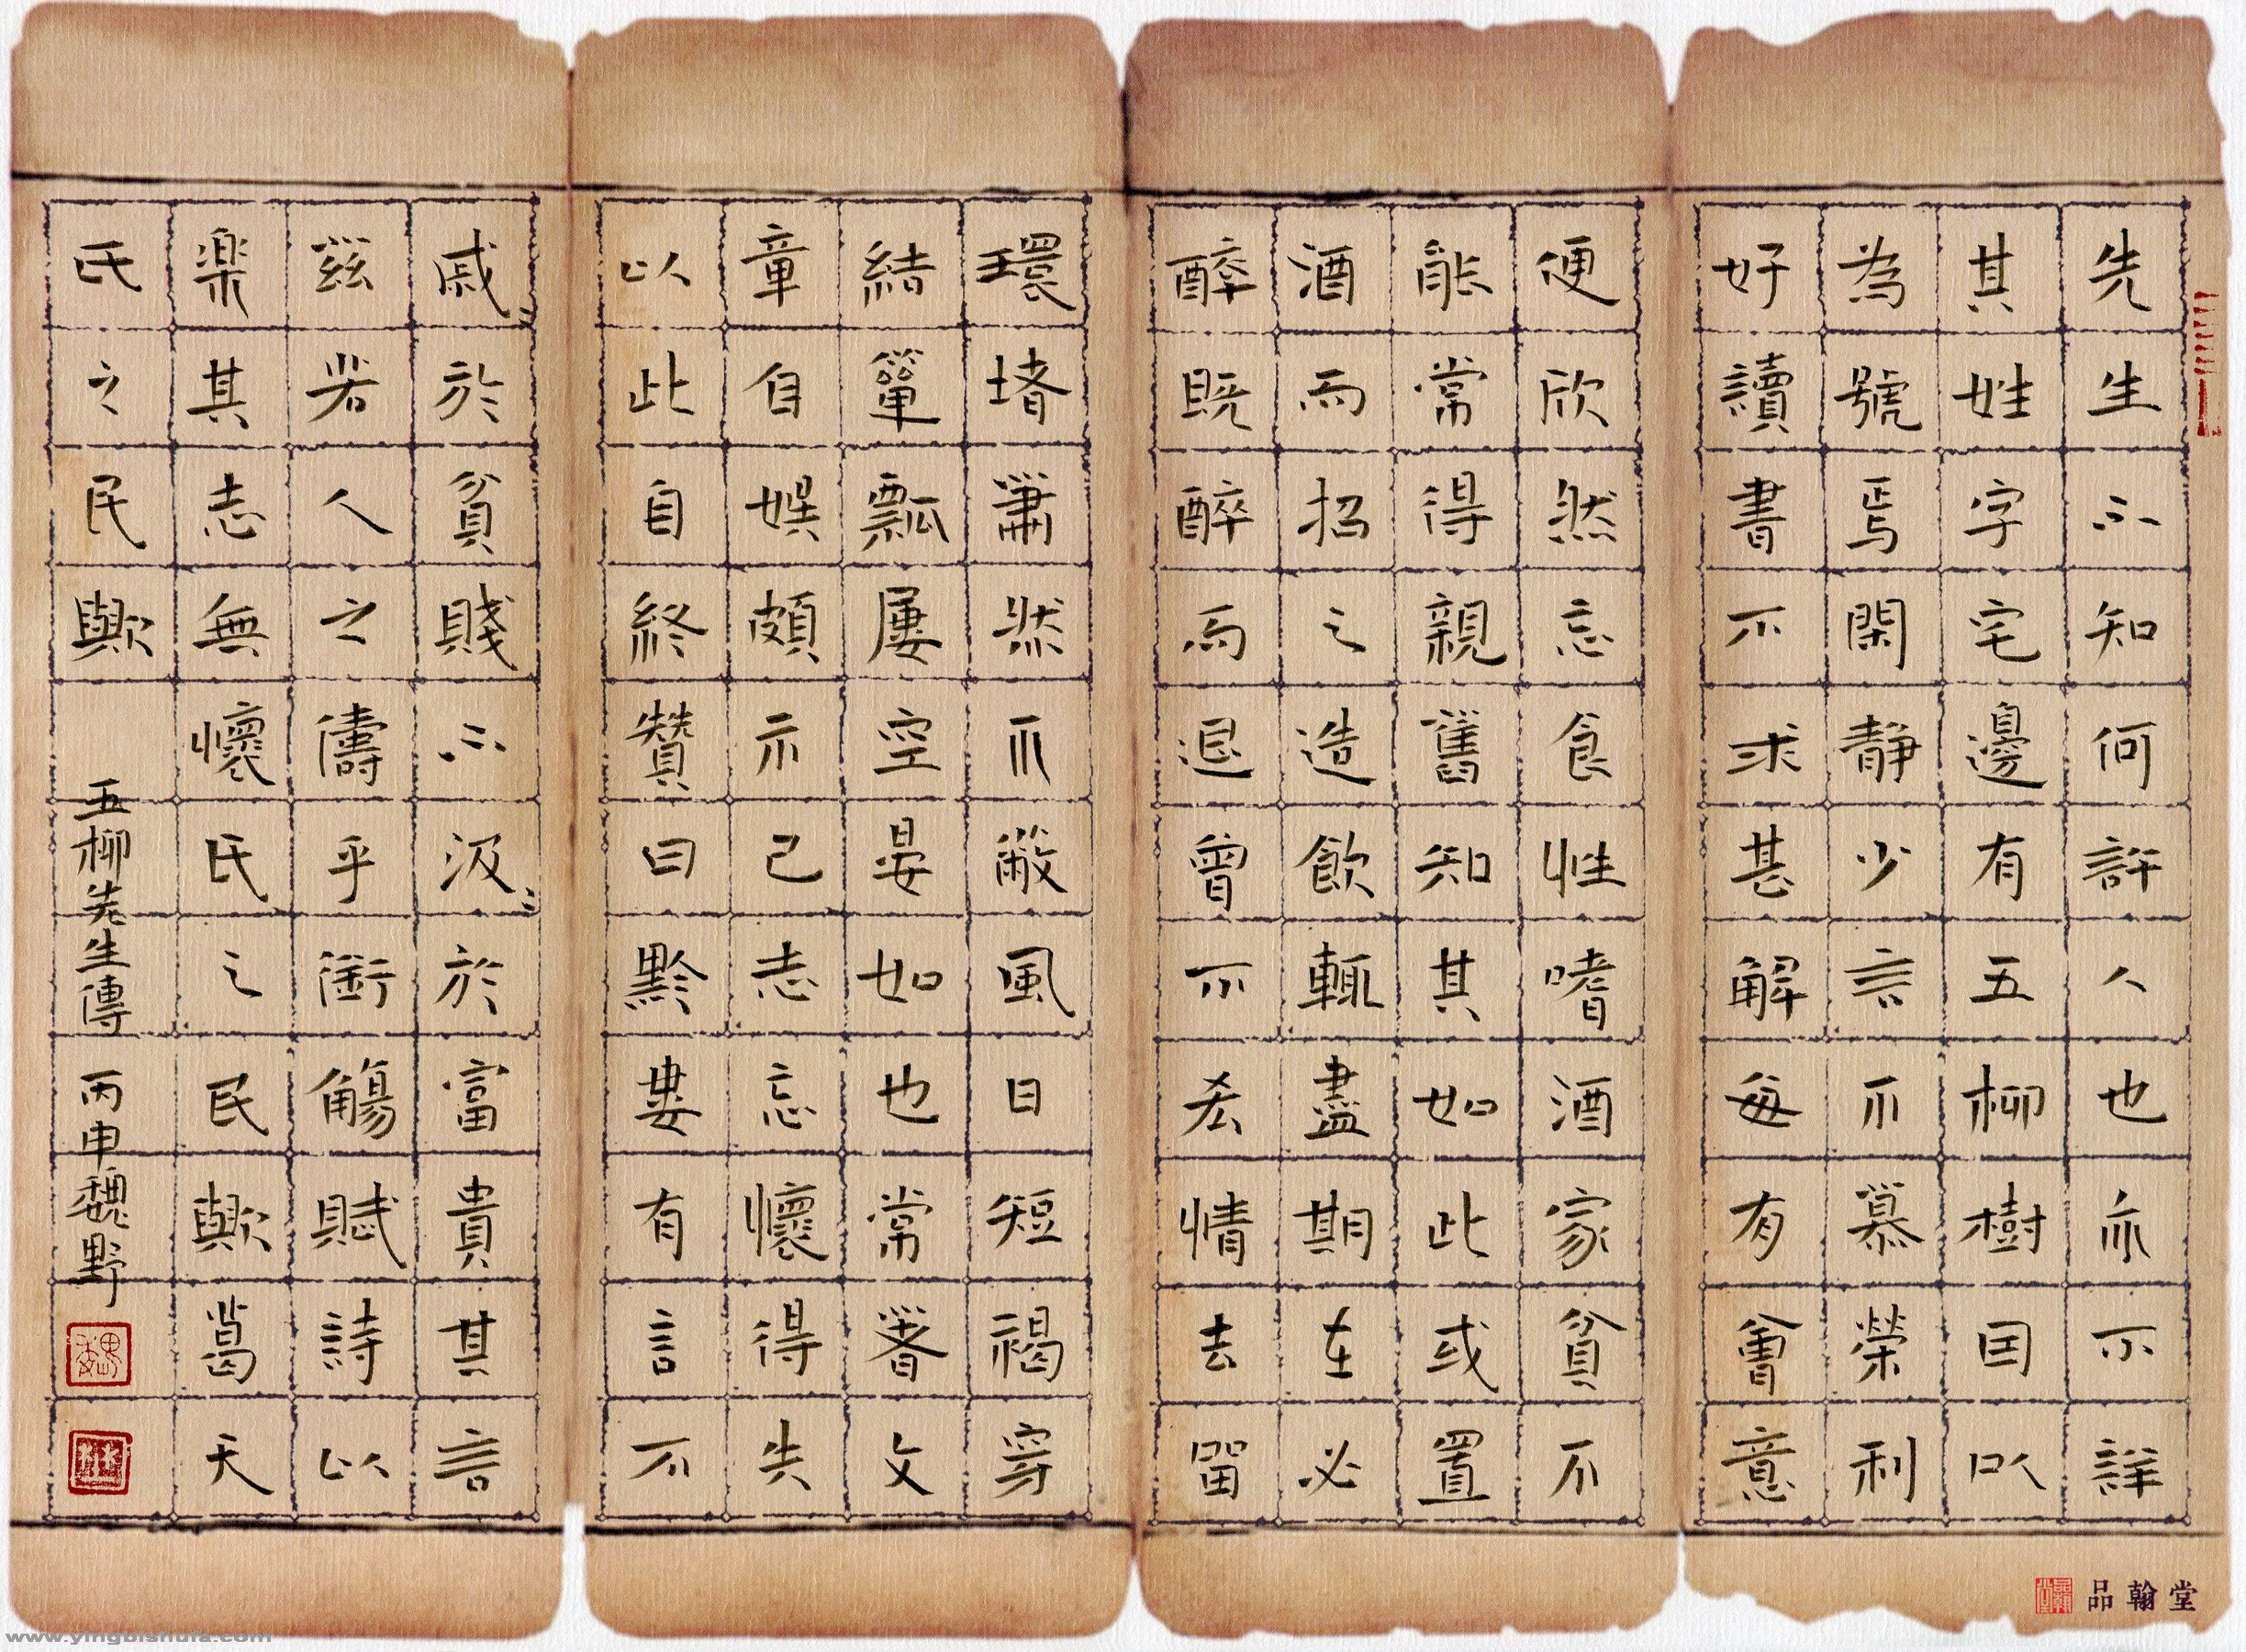 先生不知何許人也亦不詳
其姓字宅邊有五柳樹因以
為號焉閑静少言不慕榮利
好讀書不求甚解每有會意
便欣然忘食性嗜酒家貧不
能常得親舊知其如此或置
酒而招之造飲輒盡期在必
醉既醉而退曾不吝情去留
環堵蕭然不蔽風日短褐穿
結簞瓢屢空晏如也常著文
章自娛頗示己志忘懷得失
以此自終贊曰黔婁有言不
戚〻於貧賤不汲〻於富貴其言
兹若人之儔乎銜觴賦詩以
楽其志無懷氏之民歟葛天
氏之民歟
五柳先生傳 丙申魏野
品翰堂
www.yingbishufa.com